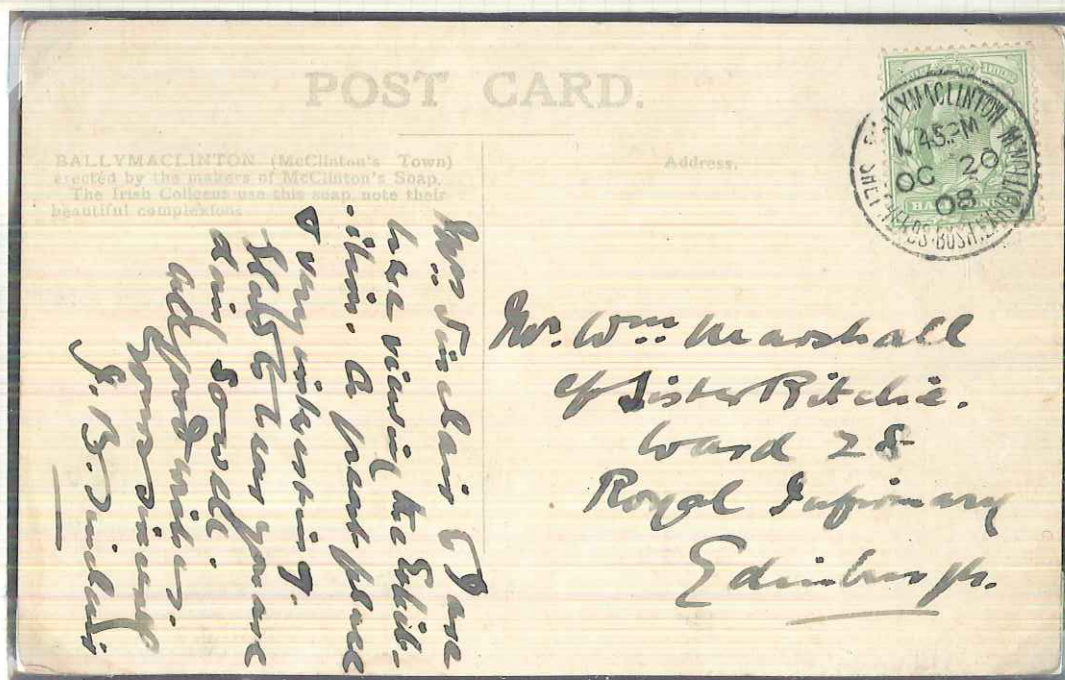 POST CARD.
BALLYMACLINTON (McClinton's Town)
erected by the makers of McClinton's Soap.
The Irish Colleens use this soap, note their
beautiful complexions
Address.
BALLYMACLINTON
1.45PM
OC 20
08
SHEPHERDS.BUSH.EXHIBITION.W
HALFPENNY
Mrs Sinclair & I are
here viewing the Exhib-
-ition. A great place
& very interesting.
Glad to hear you are
doing so well.
All good wishes.
Yours sincerely
J. B. Sinclair
Mr. Wm. Marshall
c/o Sister Ritchie.
Ward 28
Royal Infirmary
Edinburgh.